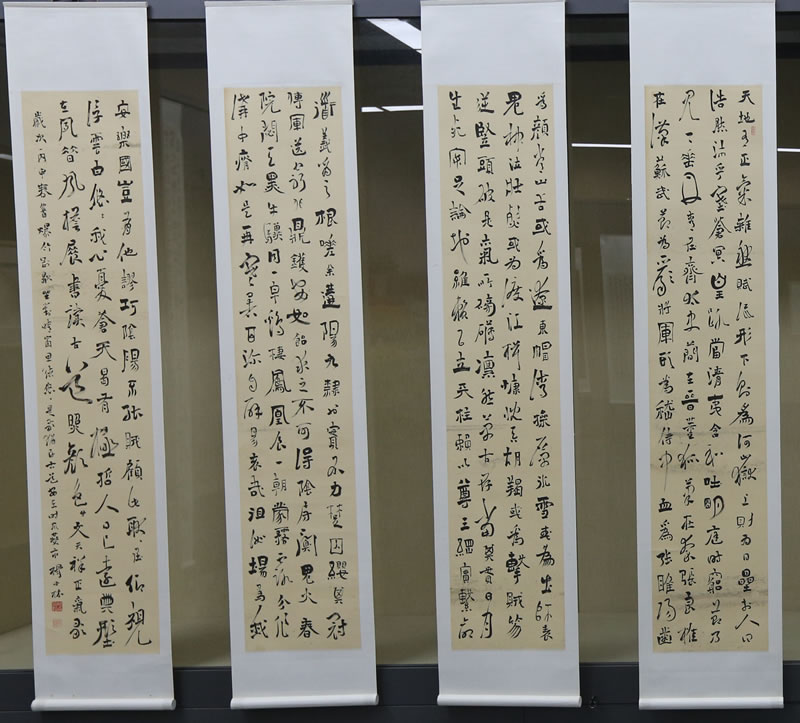 天地有正氣雜然賦流形下則為河嶽上則為日星於人曰
浩然沛乎塞蒼冥皇路當清夷含和吐明庭時窮節乃
見一一垂丹青在齊太史簡在晉董狐筆在秦張良椎
在漢蘇武節為嚴將軍頭為嵇侍中血為張睢陽齒
為顏常山舌或為遼東帽清操厲冰雪或為出師表
鬼神泣壯烈或為渡江楫慷慨吞胡羯或為擊賊笏
逆豎頭破是氣所磅礴凜然萬古存當其貫日月
生死安足論地維賴以立天柱賴以尊三綱實繫命
道義為之根嗟余遘陽九隸也實不力楚囚纓其冠
傳車送窮北鼎鑊甘如飴求之不可得陰房闃鬼火春
院閟天黑牛驥同一皁雞棲鳳凰食一朝蒙霧露分作
溝中瘠如是再寒暑百沴自辟易哀哉沮洳場為我
安樂國豈有他繆巧陰陽不能賊顧此耿耿在仰視
浮雲白悠悠我心憂蒼天曷有極哲人日已遠典型
在夙昔風簷展書讀古道照顏色文天祥正氣歌
歲次丙申